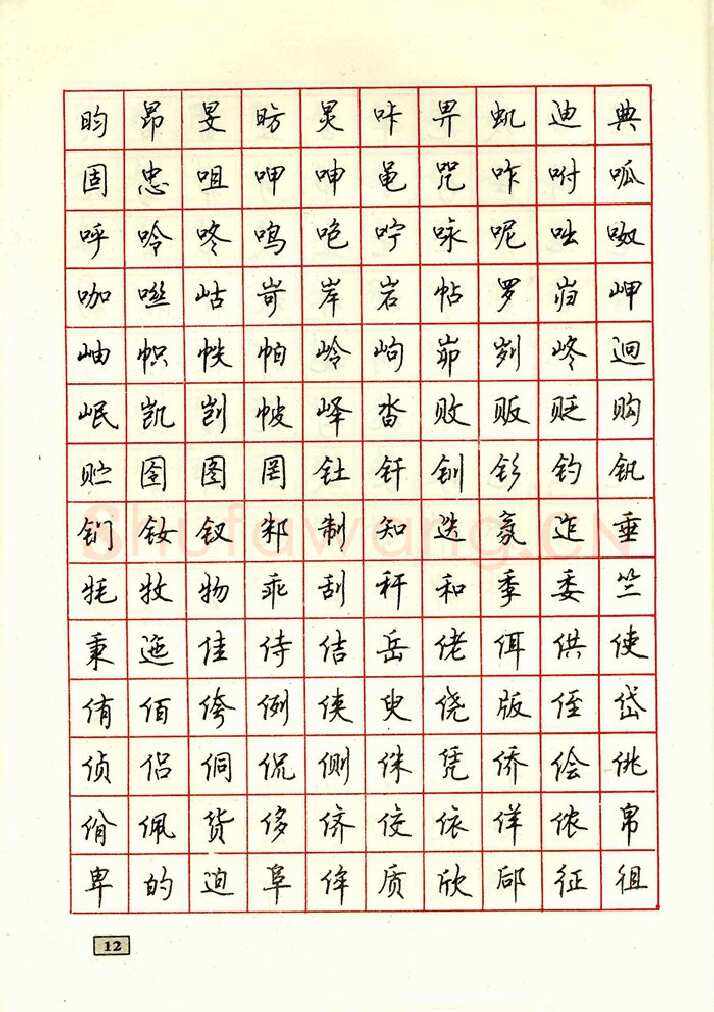 昀昂旻昉炅咔畀虮迪典
固忠咀呷呻黾咒咋咐呱
呼呤咚鸣咆咛咏呢咄呶
咖咝岵岢岸岩帖罗岿岬
岫帜帙帕岭岣峁刿峂迥
岷凯剀帔峄沓败贩贬购
贮囹图罔钍钎钏钐钓钒
钔钕钗邾制知迭氛迮垂
牦牧物乖刮秆和季委竺
秉迤佳侍佶岳佬佴供使
侑佰侉例侠臾侥版侄岱
侦侣侗侃侧侏凭侨侩佻
佾佩货侈侪佼依佯侬帛
卑的迫阜侔质欣郈征徂
12